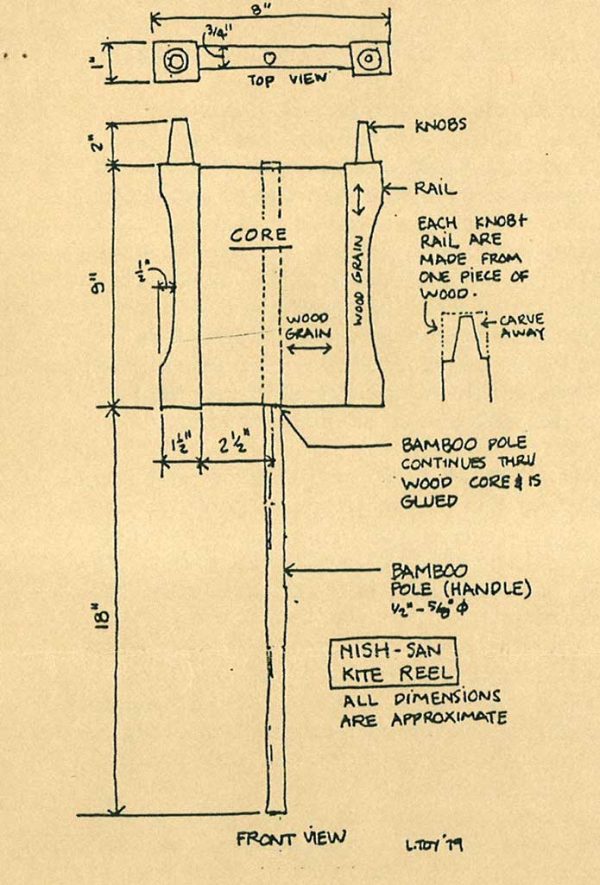 8"
3/4"
1"
TOP VIEW
2"
KNOBS
RAIL
CORE
WOOD GRAIN
EACH KNOB &
RAIL ARE
MADE FROM
ONE PIECE OF
WOOD.
CARVE
AWAY
9"
1/2"
WOOD
GRAIN
1 1/2"
2 1/2"
BAMBOO POLE
CONTINUES THRU
WOOD CORE & IS
GLUED
BAMBOO
POLE (HANDLE)
1/2" - 5/8" φ
18"
NISH-SAN
KITE REEL
ALL DIMENSIONS
ARE APPROXIMATE
FRONT VIEW
L.TOY '79